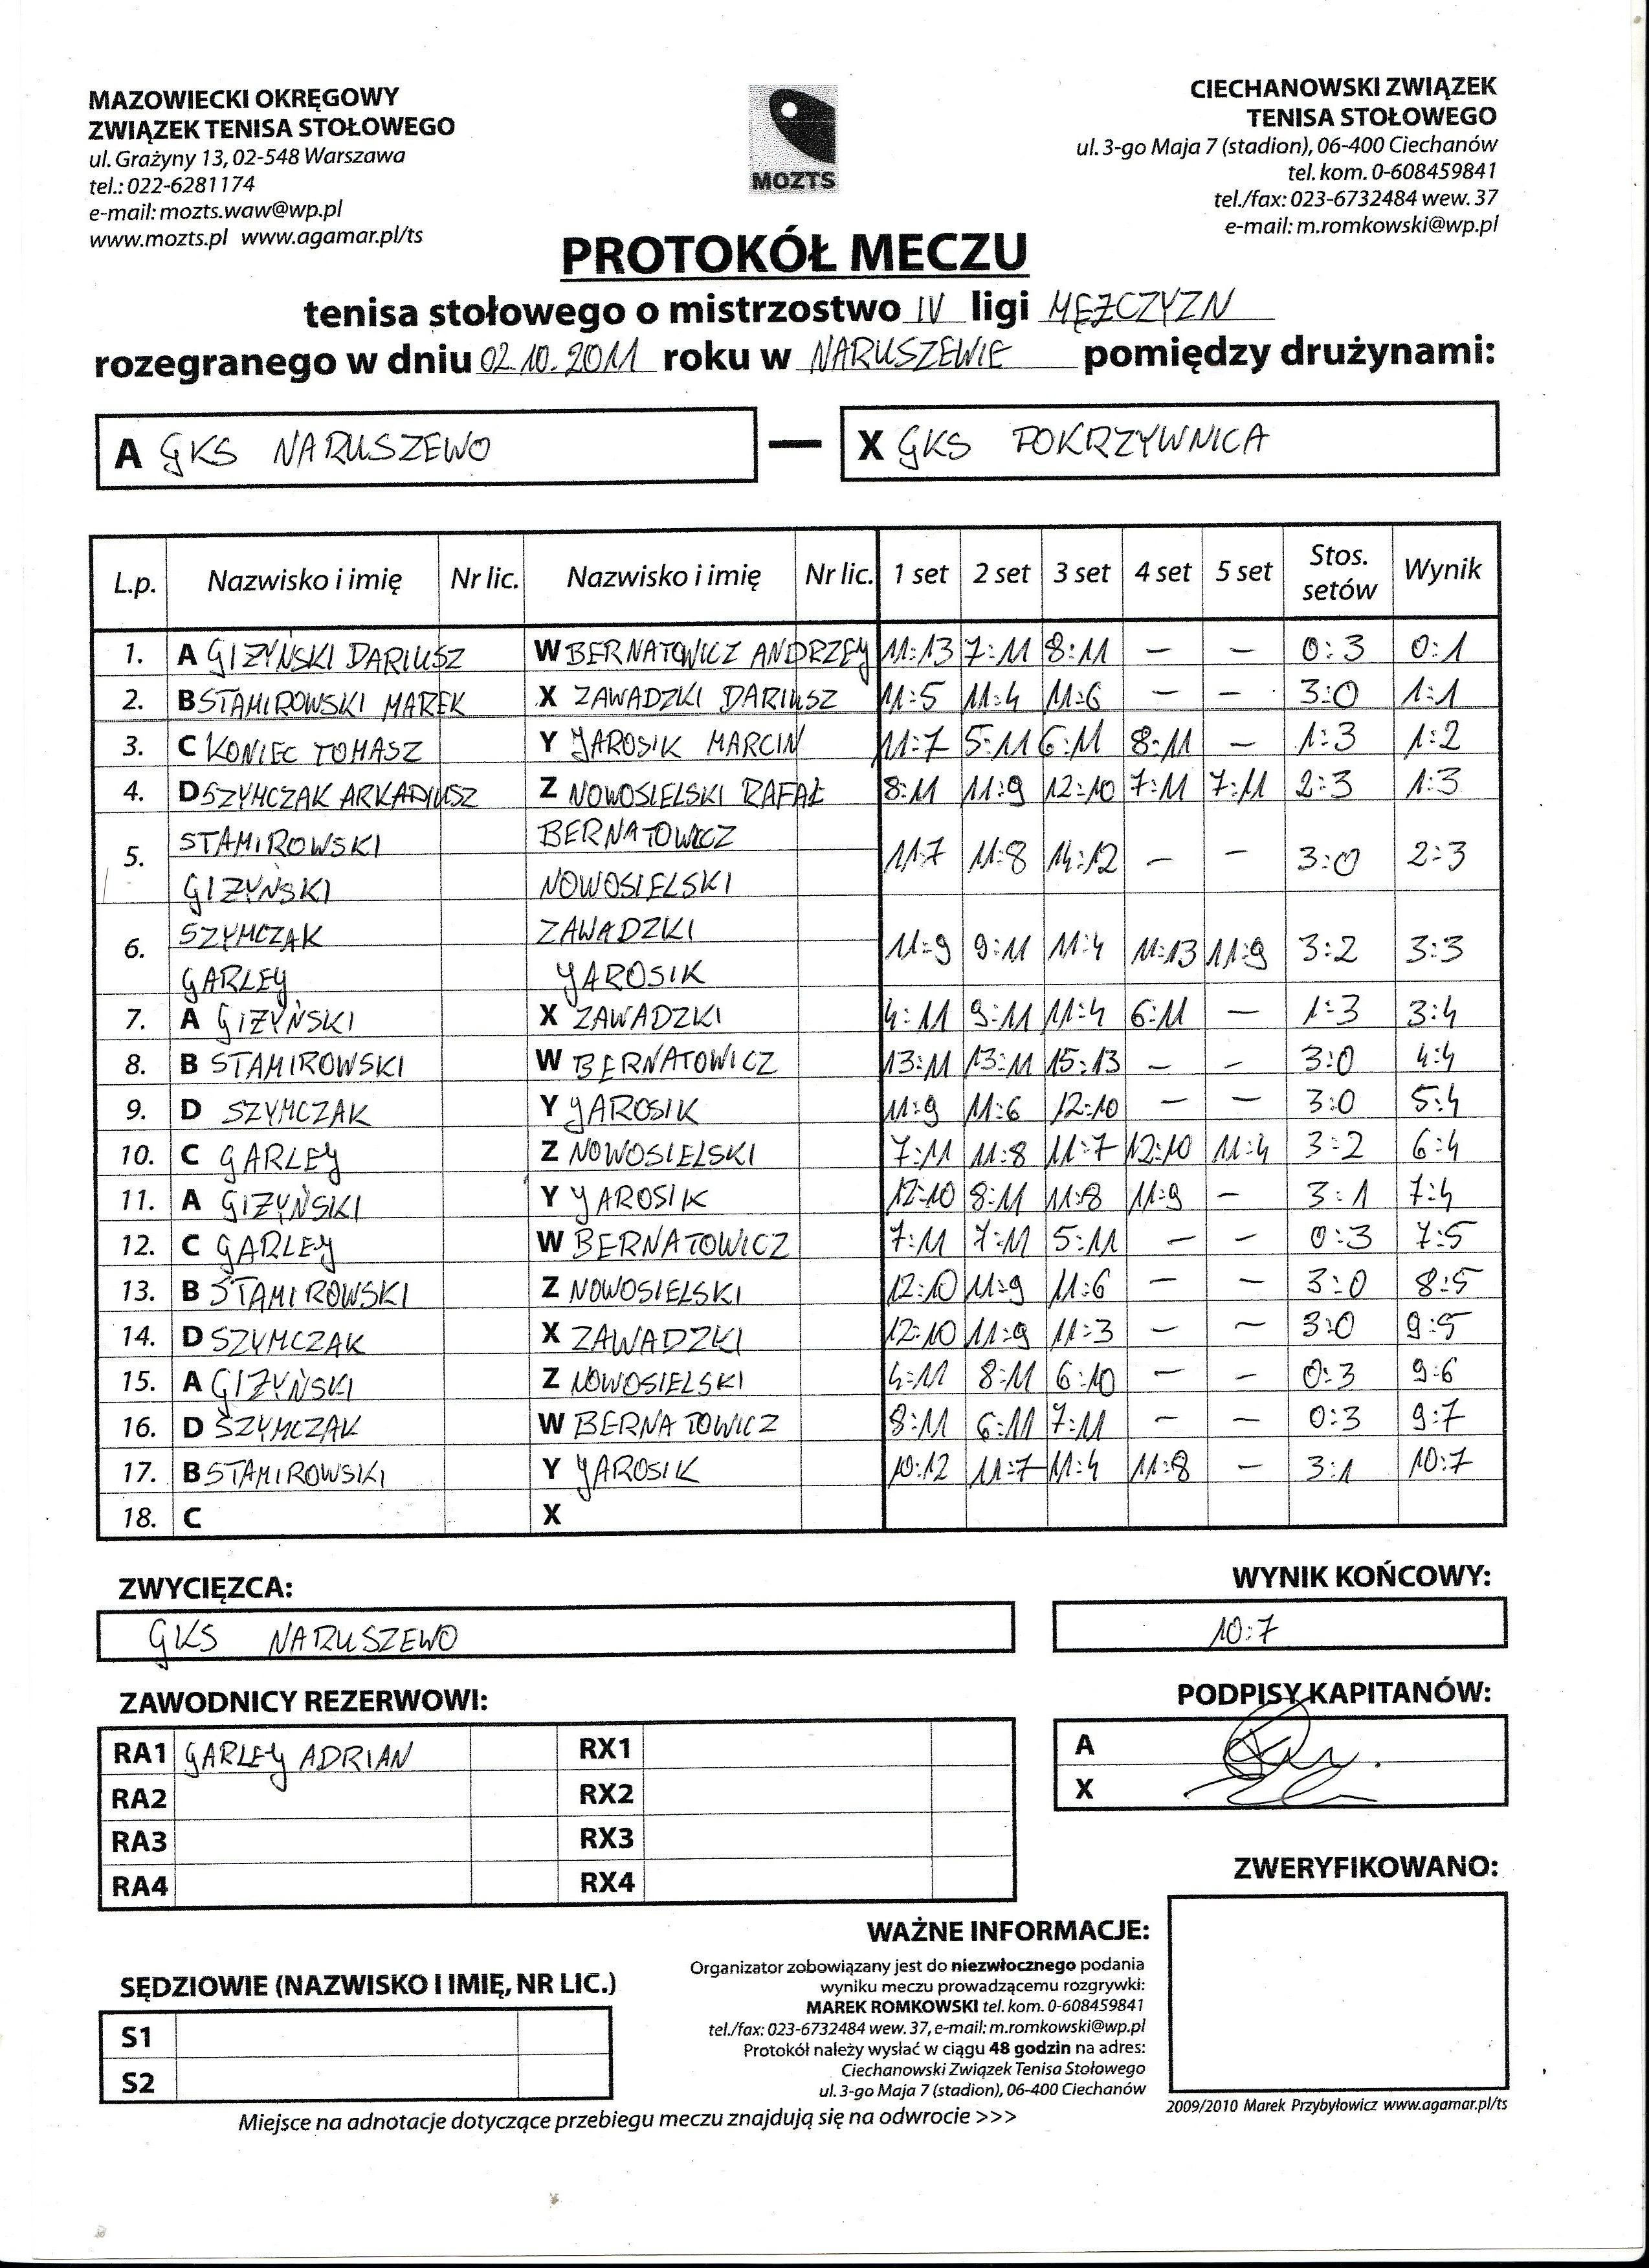 MAZOWIECKI OKRĘGOWY
ZWIĄZEK TENISA STOŁOWEGO
ul. Grażyny 13, 02-548 Warszawa
tel.: 022-6281174
e-mail: mozts.waw@wp.pl
www.mozts.pl www.agamar.pl/ts
MOZTS
CIECHANOWSKI ZWIĄZEK
TENISA STOŁOWEGO
ul. 3-go Maja 7 (stadion), 06-400 Ciechanów
tel. kom. 0-608459841
tel./fax: 023-6732484 wew. 37
e-mail: m.romkowski@wp.pl
PROTOKÓŁ MECZU
tenisa stołowego o mistrzostwo IV ligi MĘŻCZYZN
rozegranego w dniu 02.10.2011 roku w NARUSZEWIE pomiędzy drużynami:
A GKS NARUSZEWO — X GKS POKRZYWNICA
L.p. Nazwisko i imię Nr lic. Nazwisko i imię Nr lic. 1 set 2 set 3 set 4 set 5 set Stos. setów Wynik
1. A GIZYŃSKI DARIUSZ W BERNATOWICZ ANDRZEJ 11:13 7:11 8:11 — — 0:3 0:1
2. B STAMIROWSKI MAREK X ZAWADZKI DARIUSZ 11:5 11:4 11:6 — — 3:0 1:1
3. C KONIEC TOMASZ Y JAROSIK MARCIN 11:7 5:11 6:11 8:11 — 1:3 1:2
4. D SZYMCZAK ARKADIUSZ Z NOWOSIELSKI RAFAŁ 8:11 11:9 12:10 7:11 7:11 2:3 1:3
5. STAMIROWSKI BERNATOWICZ 11:7 11:8 14:12 — — 3:0 2:3
GIZYŃSKI NOWOSIELSKI
6. SZYMCZAK ZAWADZKI 11:9 9:11 11:4 11:13 11:9 3:2 3:3
GARLEJ JAROSIK
7. A GIZYŃSKI X ZAWADZKI 4:11 9:11 11:4 6:11 — 1:3 3:4
8. B STAMIROWSKI W BERNATOWICZ 13:11 13:11 15:13 — — 3:0 4:4
9. D SZYMCZAK Y JAROSIK 11:9 11:6 12:10 — — 3:0 5:4
10. C GARLEJ Z NOWOSIELSKI 7:11 11:8 11:7 12:10 11:4 3:2 6:4
11. A GIZYŃSKI Y JAROSIK 12:10 8:11 11:8 11:9 — 3:1 7:4
12. C GARLEJ W BERNATOWICZ 7:11 7:11 5:11 — — 0:3 7:5
13. B STAMIROWSKI Z NOWOSIELSKI 12:10 11:9 11:6 — — 3:0 8:5
14. D SZYMCZAK X ZAWADZKI 12:10 11:9 11:3 — — 3:0 9:5
15. A GIZYŃSKI Z NOWOSIELSKI 4:11 8:11 6:10 — — 0:3 9:6
16. D SZYMCZAK W BERNATOWICZ 8:11 6:11 7:11 — — 0:3 9:7
17. B STAMIROWSKI Y JAROSIK 10:12 11:7 11:4 11:8 — 3:1 10:7
18. C X
ZWYCIĘZCA: WYNIK KOŃCOWY:
GKS NARUSZEWO 10:7
ZAWODNICY REZERWOWI: PODPISY KAPITANÓW:
RA1 GARLEJ ADRIAN RX1
RA2 RX2
RA3 RX3
RA4 RX4
A
X
ZWERYFIKOWANO:
WAŻNE INFORMACJE:
Organizator zobowiązany jest do niezwłocznego podania
wyniku meczu prowadzącemu rozgrywki:
MAREK ROMKOWSKI tel. kom. 0-608459841
tel./fax: 023-6732484 wew. 37, e-mail: m.romkowski@wp.pl
Protokół należy wysłać w ciągu 48 godzin na adres:
Ciechanowski Związek Tenisa Stołowego
ul. 3-go Maja 7 (stadion), 06-400 Ciechanów
SĘDZIOWIE (NAZWISKO I IMIĘ, NR LIC.)
S1
S2
2009/2010 Marek Przybyłowicz www.agamar.pl/ts
Miejsce na adnotacje dotyczące przebiegu meczu znajdują się na odwrocie >>>